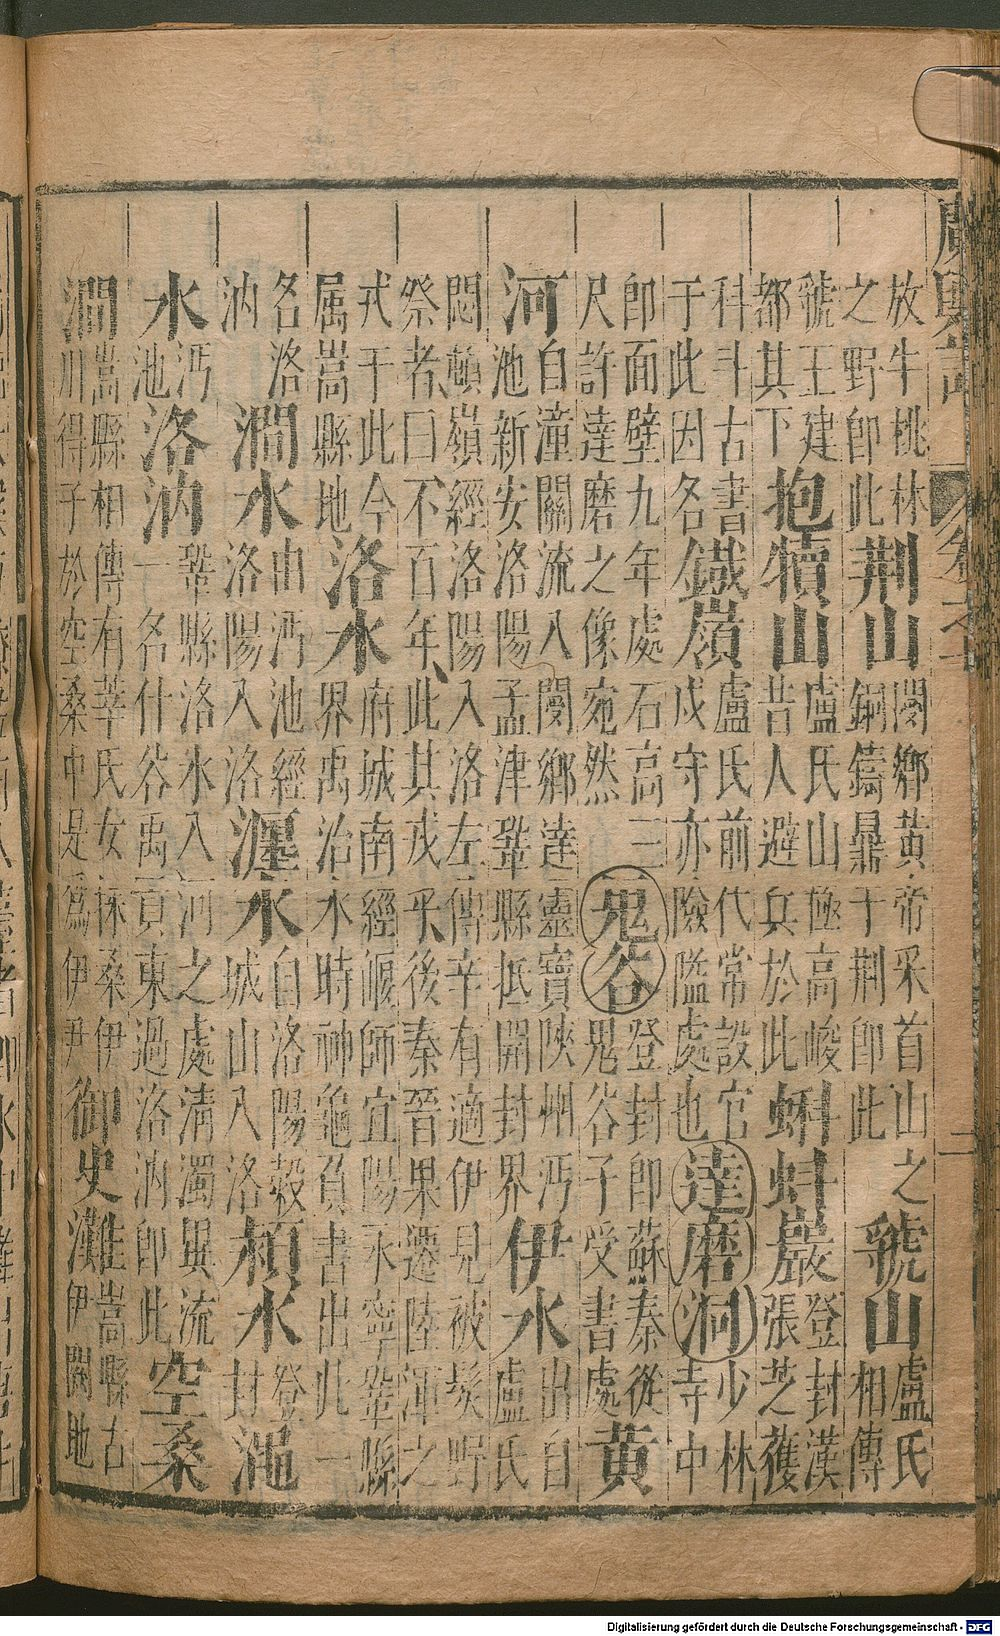 放牛桃林之野即此荆山閿鄉黃帝采首山之銅鑄鼎于荆即此虢山盧氏相傳
虢王建都其下抱犢山盧氏山極高峻昔人避兵於此蝌蚪巖登封漢張芝獲
科斗古書于此因名鐵嶺盧氏前代常設官戍守亦險隘處也達磨洞少林寺中
即面壁九年處石高三尺許達磨之像宛然鬼谷登封即蘇秦從鬼谷子受書處黃
河自潼關流入閿鄉達靈寶陝州沔池新安洛陽孟津鞏縣抵開封界伊水出自盧氏
悶頓嶺經洛陽入洛左傳辛有適伊見被髮野祭者曰不百年此其戎乎後秦晉果遷陸渾之
戎于此今屬嵩縣地洛水府城南經偃師宜陽永寧鞏縣界禹治水時神龜負書出此一
名洛汭澗水由沔池經洛陽入洛瀍水自洛陽穀城山入洛潁水登封澠
水沔池洛汭鞏縣洛水入河之處清濁異流一名什谷禹貢東過洛汭即此空桑
澗嵩縣相傳有莘氏女採桑伊川得子於空桑中是爲伊尹御史灘嵩縣古伊闕地
廣輿記
二
Digitalisierung gefördert durch die Deutsche Forschungsgemeinschaft - DFG